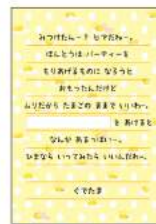 みつけたん〜? ヒマだね〜。
ほんとうは パーティーを
もりあげるものに なろうと
おもったんだけど
ムリだから たまごの ままで いいわ〜。
を あけると
なんか あるっぽい〜。
ひまなら いってみたら いいんだわ〜。
ぐでたま